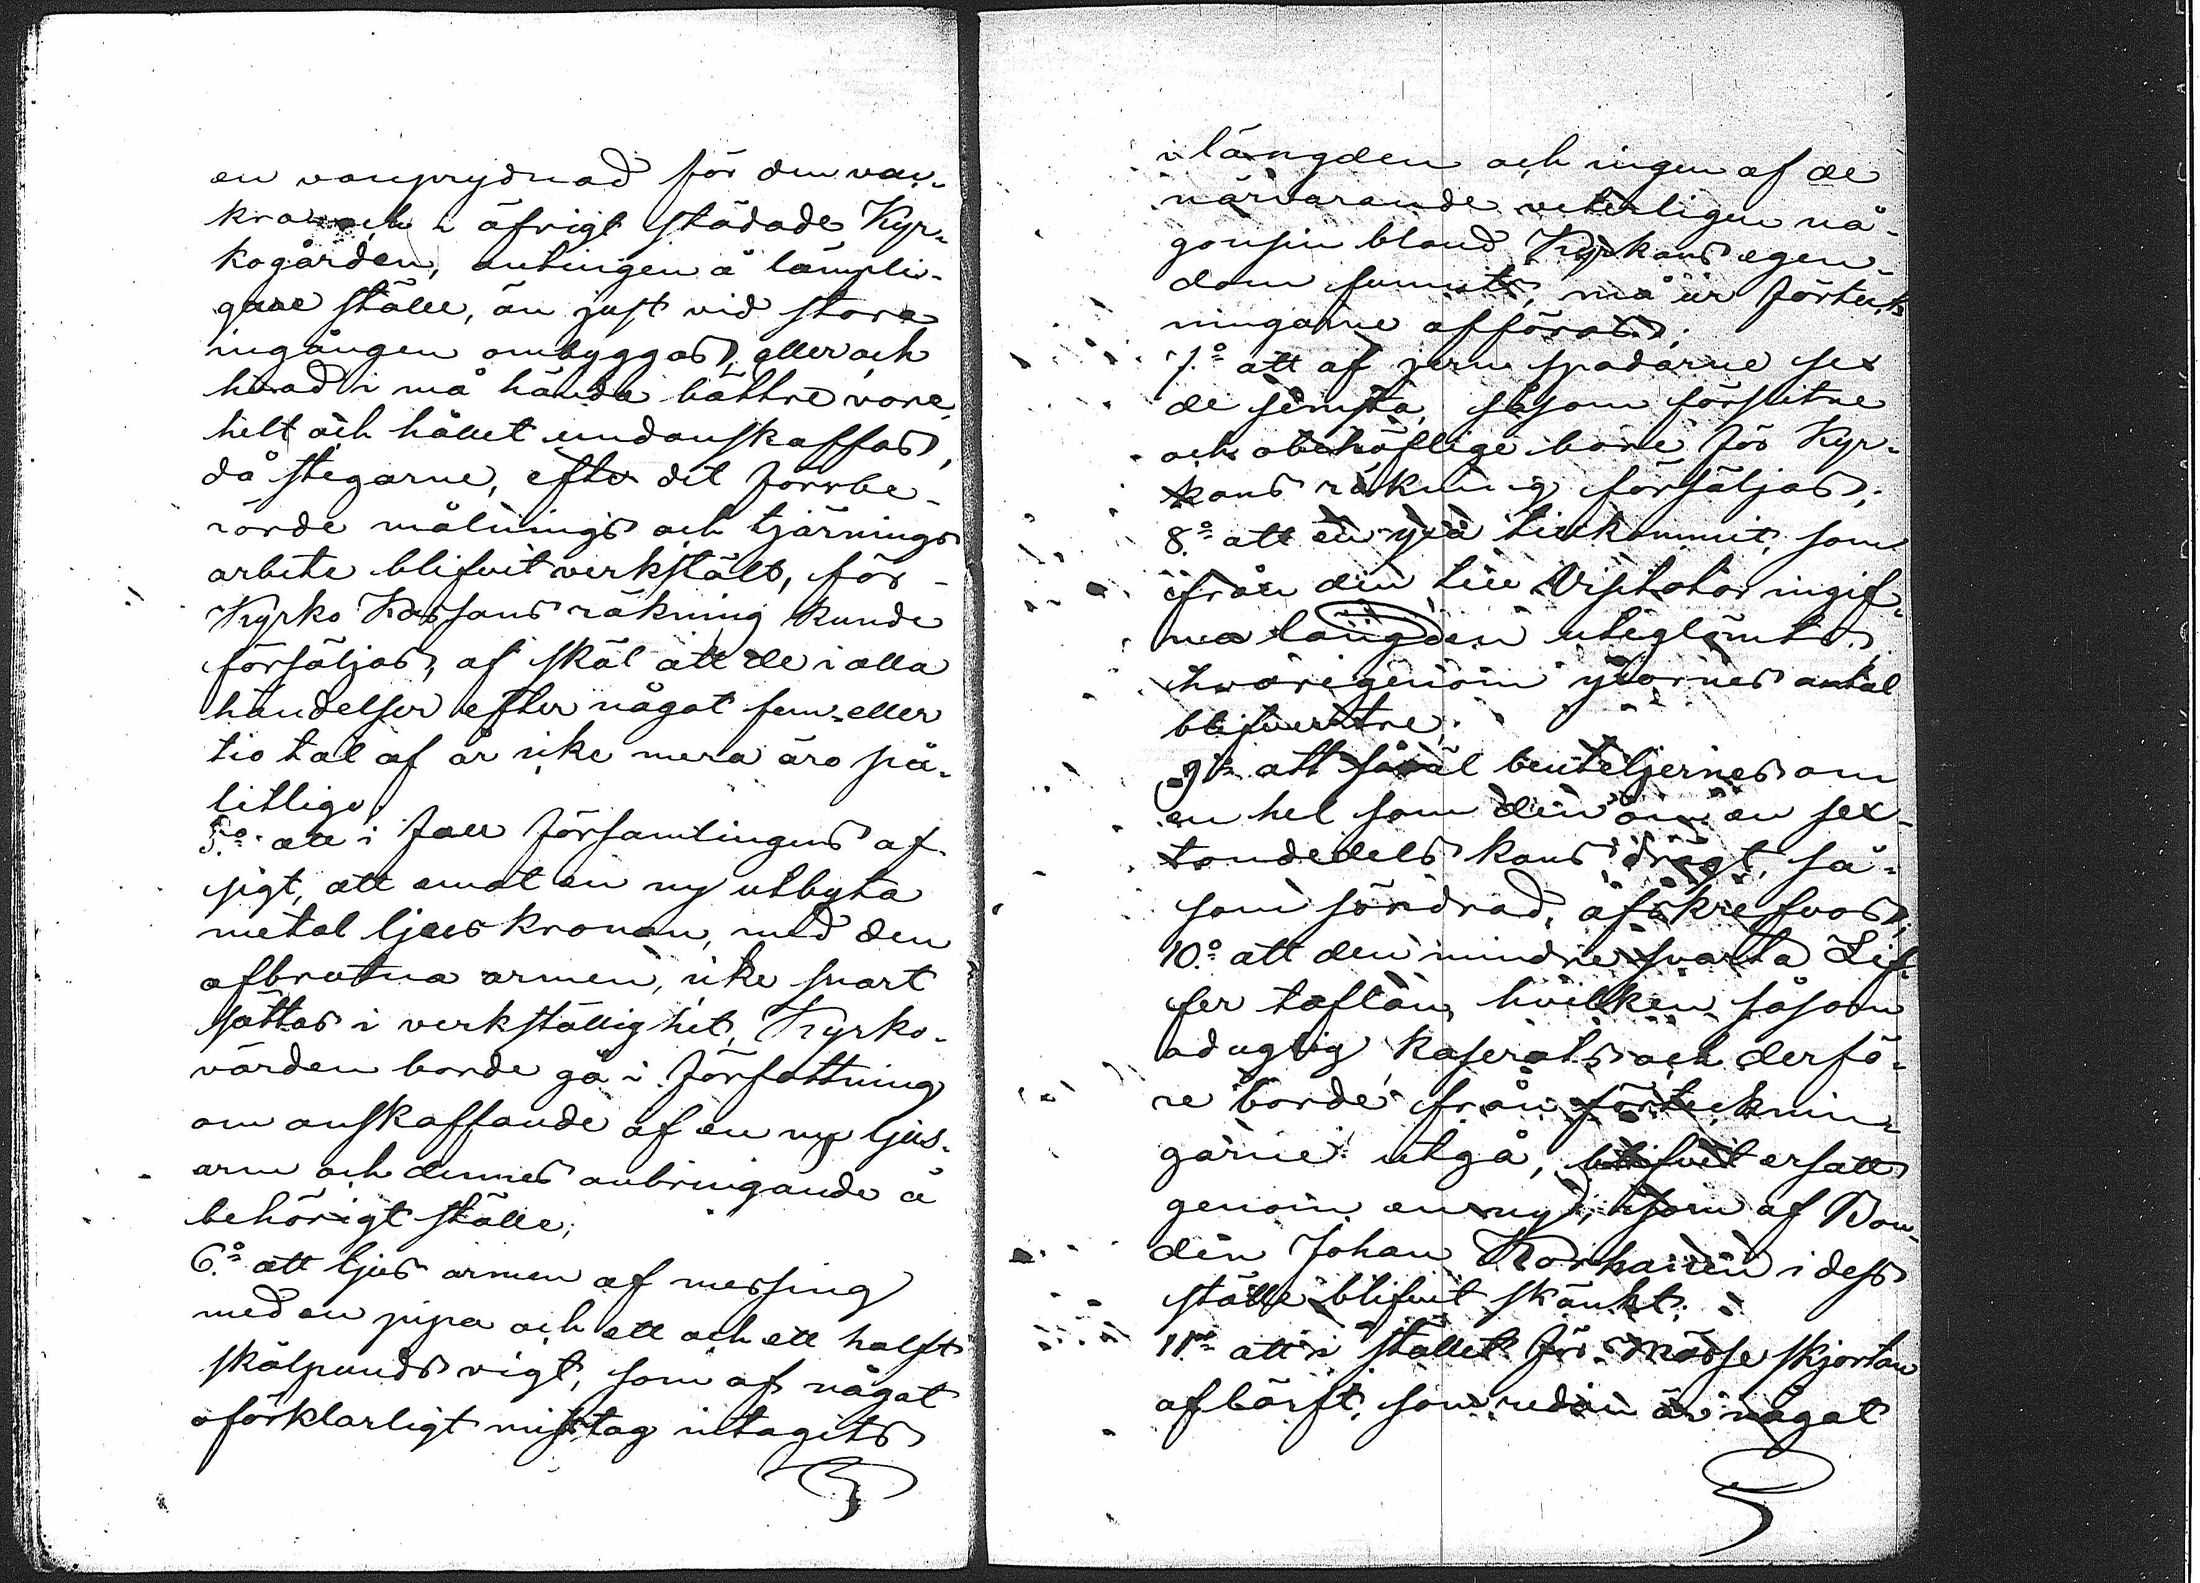 en vanprydnad för den vac-
kra och i öfrigt städade Kyr-
kogården, antingen å lämpli-
gare ställe, än just vid stora
ingången ombyggas, eller och
hvad i må hända bättre vore
helt och hållet undanskaffas,
då stegarne, efter det förrbe-
rörde målnings och tjärnings
arbete blifvit verkstäldt, för
Kyrko Kassans räkning kunde
försäljas, af skäl att de i alla
händelser efter något fem-eller
tio tal af år icke mera äro på-
litlige;
5:o att i fall församlingens af-
sigt, att emot en ny utbyta
metal ljus kronan, med den
afbrutna armen, icke snart
sättas i verkställighet, Kyrko-
värden borde gå i författning
om anskaffande af en ny ljus-
arm och dennes anbringande å
behörigt ställe;
6:o att ljus armen af messing
med en pipa och ett och ett halft
skålpunds vigt, som af något
oförklarligt misstag intagits
i längden och ingen af de
närvarande veterligen nå-
gonsin bland Kyrkans egen-
dom funnits, må ur förteck-
ningarne afföras;
7:o att af jern spadarne sex
de sämsta, såsom försletne
och obehöflige borde för Kyr-
kans räkning försäljas;
8:o att en yxa tillkommit, som
ifrån den till Visitator ingif-
na längden uteglömts,
hvarigenom yxornes antal
blifver tre;
9:o att såväl bouteljernes om
en hel som den om en sex-
tondedels kans drägt, så-
som söndrad, afskrefvos;
10:o att den mindre svarta Zif-
fer taflan, hvilken såsom
oduglig kaserats och derfö-
re borde från förtecknin-
garne utgå, blifvit ersatt
genom en ny, som af Bon-
den Johan Korhonen i dess
ställe blifvit skänkt;
11:o att i stället för Mässe skjortan
af lärft, som redan är något